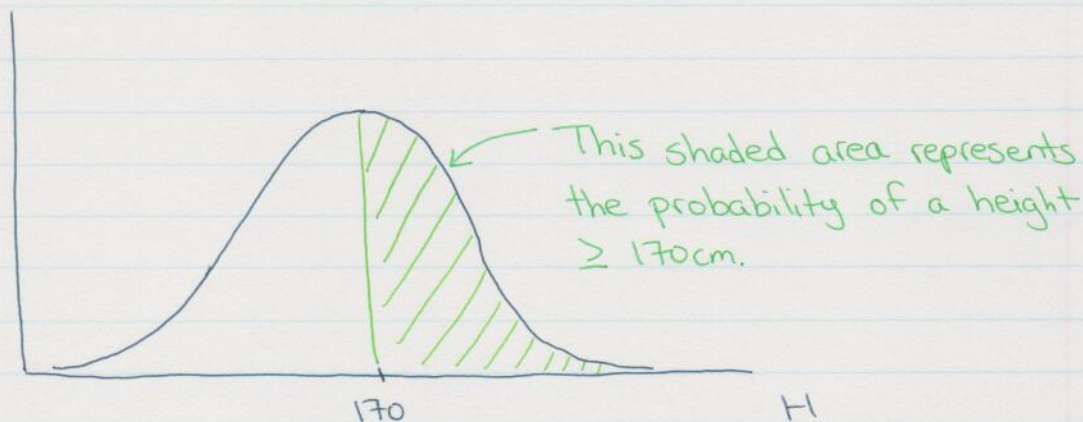 This shaded area represents
the probability of a height
≥ 170cm.
170
H